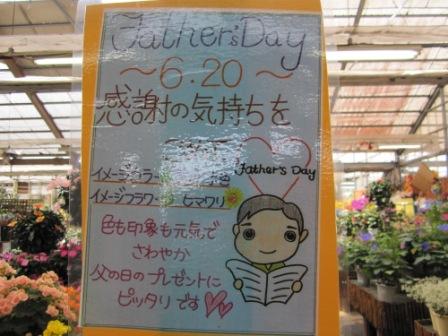 Father's Day
～6.20～
感謝の気持ちを
Father's Day
イメージカラー
イメージフラワー ヒマワリ
色も印象も元気で
さわやか
父の日のプレゼントに
ピッタリです